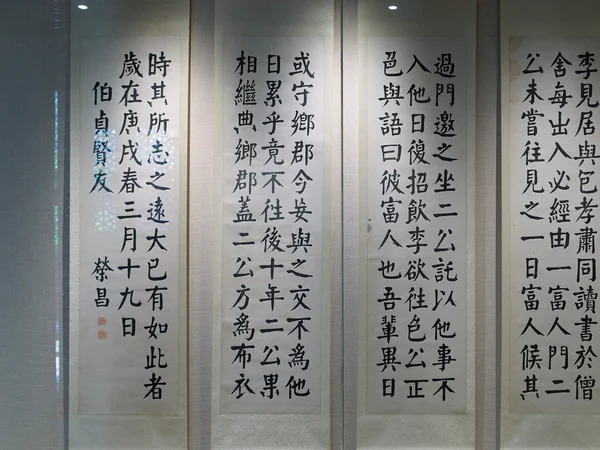 李見居與包孝肅同讀書於僧
舍每出入必經由一富人門二
公未嘗往見之一日富人候其
過門邀之坐二公託以他事不
入他日復招飲李欲往包公正
色與語曰彼富人也吾輩異日
或守鄉郡今妄與之交不為他
日累乎竟不往後十年二公果
相繼典鄉郡蓋二公方為布衣
時其所志之遠大已有如此者
歲在庚戌春三月十九日
伯貞賢友
榮昌